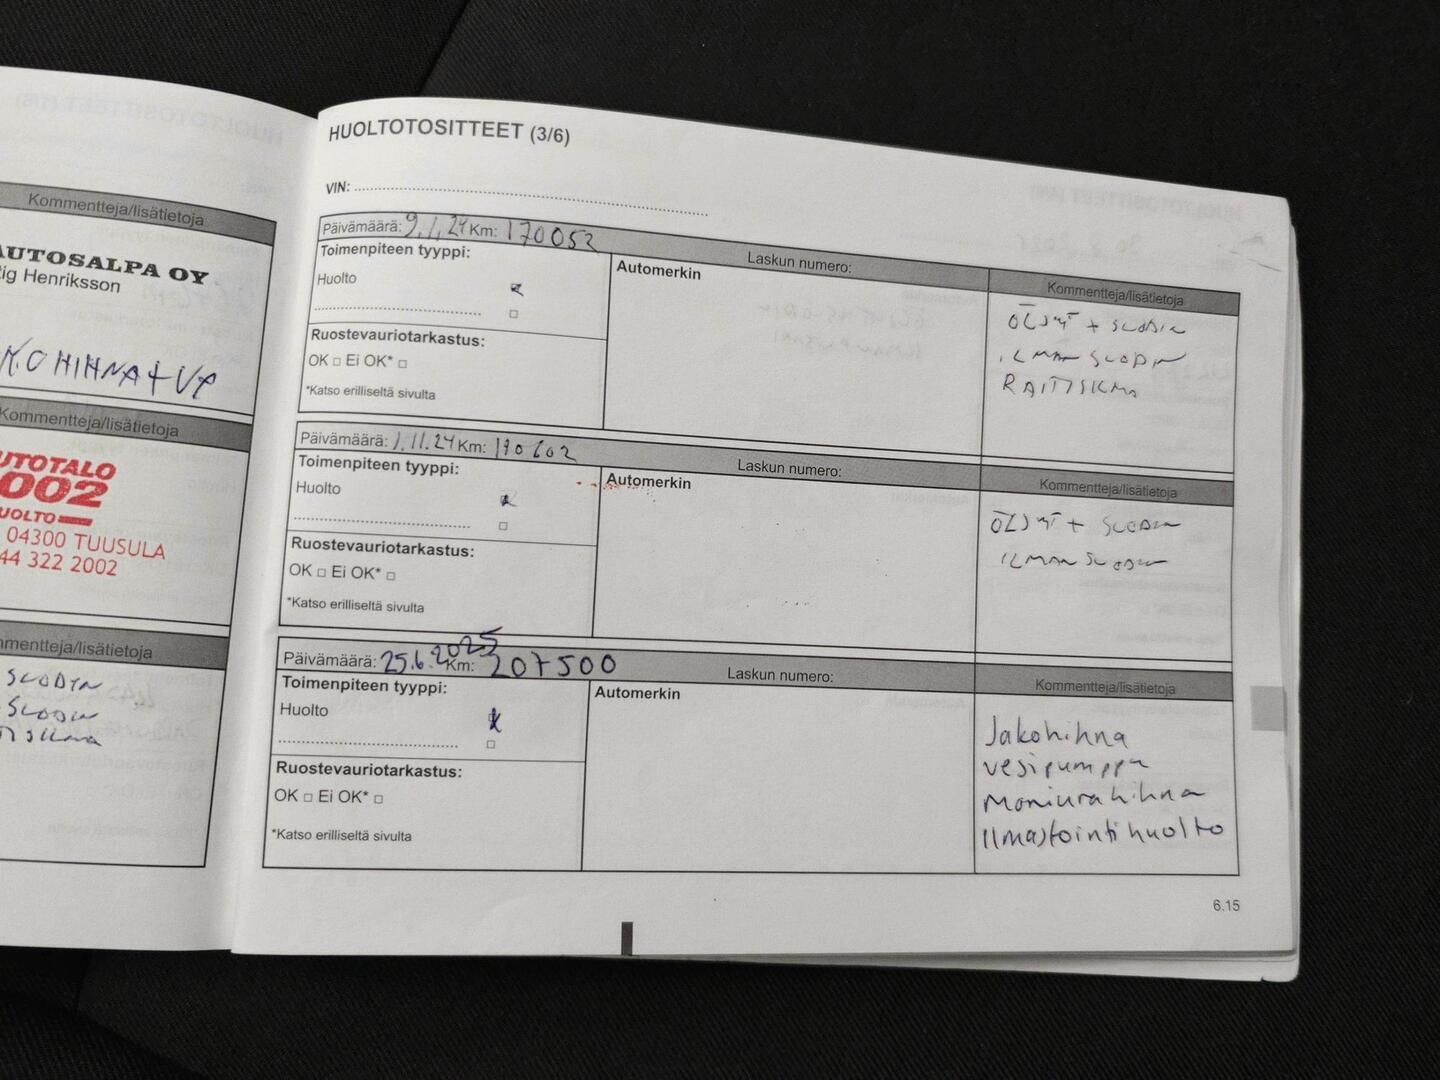 Kommentteja/lisätietoja
AUTOSALPA OY
ig Henriksson
KOHIHNA + VP
Kommentteja/lisätietoja
UTOTALO
002
UOLTO
04300 TUUSULA
44 322 2002
mmentteja/lisätietoja
SUODIN
SUODIN
HUOLTOTOSITTEET (3/6)
VIN:
Päivämäärä: 9.1.24 Km: 170052
Laskun numero:
Toimenpiteen tyyppi:
Huolto
Ruostevauriotarkastus:
OK □ Ei OK* □
*Katso erilliseltä sivulta
Automerkin
Kommentteja/lisätietoja
ÖLJYT + SUODIN
ILMAN SUODIN
RAITISILMA
Päivämäärä: 1.11.24 Km: 190602
Laskun numero:
Toimenpiteen tyyppi:
Huolto
Ruostevauriotarkastus:
OK □ Ei OK* □
*Katso erilliseltä sivulta
Automerkin
Kommentteja/lisätietoja
ÖLJYT + SUODIN
ILMAN SUODIN
Päivämäärä: 25.6.2025 Km: 207500
Laskun numero:
Toimenpiteen tyyppi:
Huolto
Ruostevauriotarkastus:
OK □ Ei OK* □
*Katso erilliseltä sivulta
Automerkin
Kommentteja/lisätietoja
Jakohihna
vesipumppu
Moniurahihna
Ilmastointihuolto
6.15